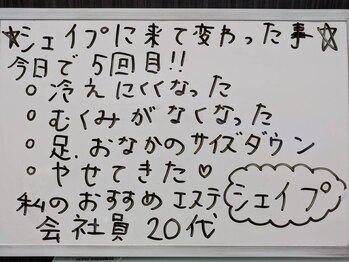 ☆シェイプに来て変わった事☆
今日で 5回目!!
○ 冷えにくくなった
○ むくみがなくなった
○ 足、おなかのサイズダウン
○ やせてきた♡
私のおすすめ エステ シェイプ
会社員 20代